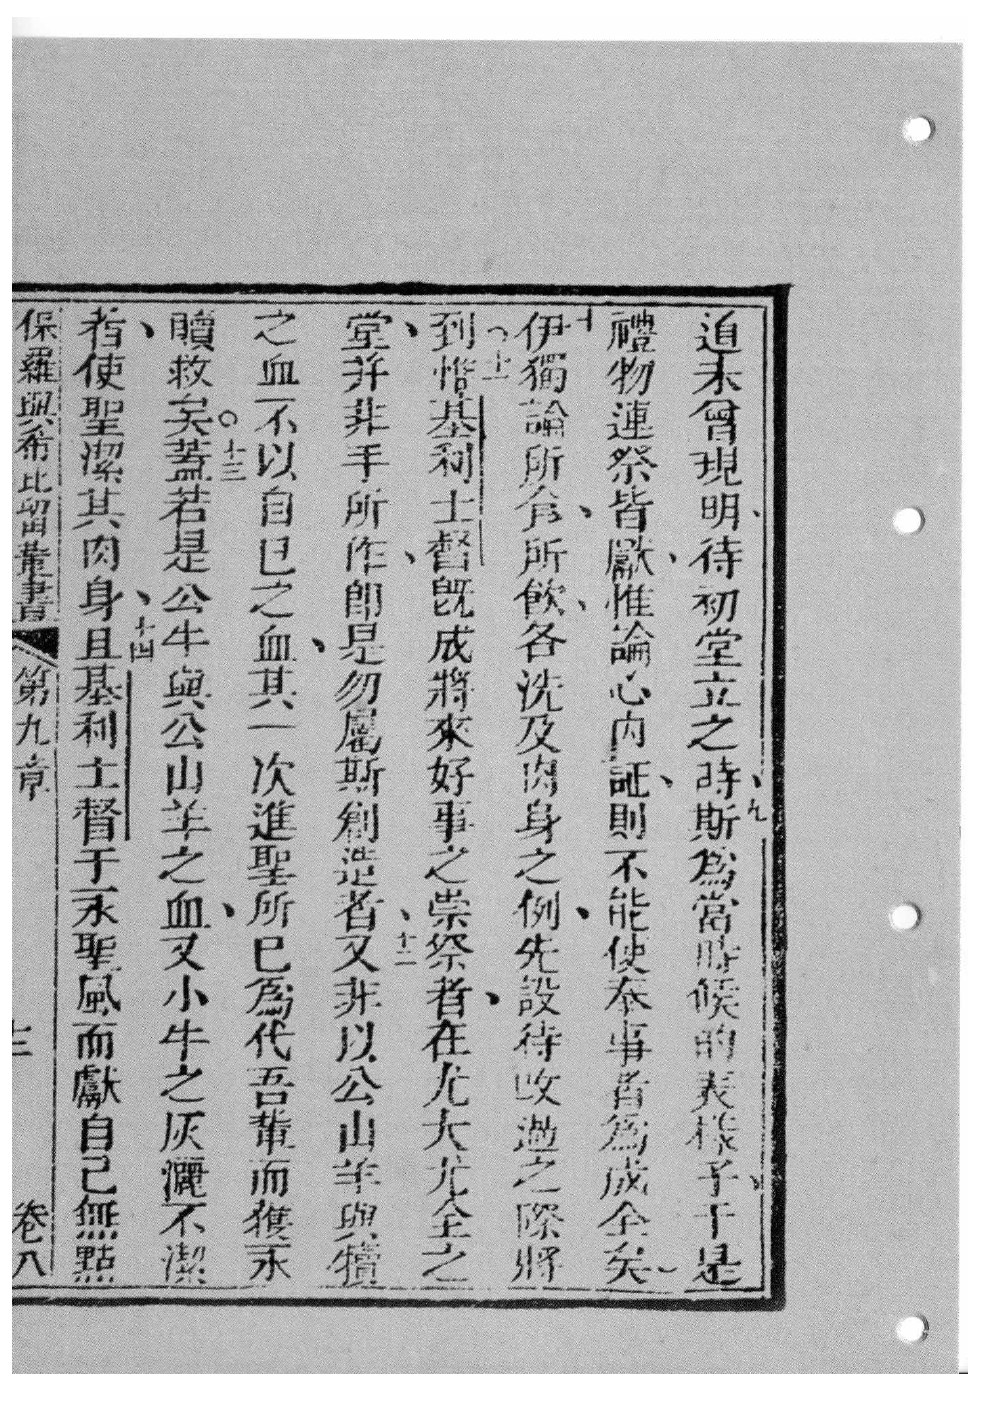 道未曾現明、待初堂立之時、九斯為當時候的表樣子、于是
禮物連祭皆獻、惟論心內証、則不能使奉事者為成全矣
十伊獨論所食、所飲、各洗及肉身之例、先設待改過之際將
到。十一惟基利士督旣成將來好事之崇祭者、在尤大尤全之
堂、并非手所作、卽是勿屬斯創造者、十二又非以公山羊與犢
之血、不以自己之血、其一次進聖所已為代吾輩而獲永
贖救矣。十三蓋若是公牛與公山羊之血、又小牛之灰灑不潔
者、使聖潔其肉身、十四且基利士督于永聖風而獻自己無點
保羅與希比留輩書 第九章 卷八